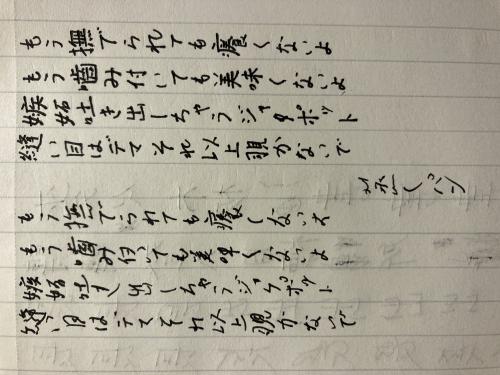 もう撫でられても癢くないよ
もう噛み付いても美味くないよ
嫉妬吐き出しちゃうジャックポット
縫い目はデマそれ以上覗かないで
もう撫でられても癢くないよ
もう噛み付いても美味くないよ
嫉妬吐き出しちゃうジャックポット
縫い目はデマそれ以上覗かないで